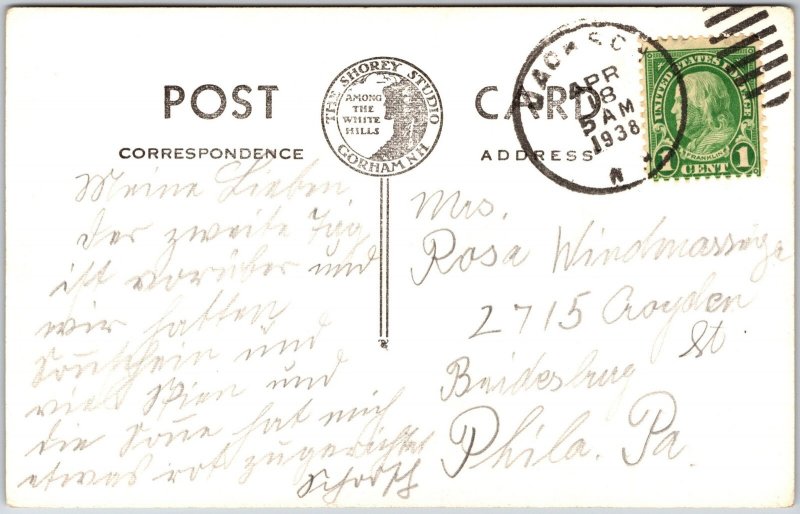 POST CARD
THE SHOREY STUDIO
AMONG
THE
WHITE
HILLS
GORHAM N.H.
CORRESPONDENCE
ADDRESS
JACKSON
APR
18
5 AM
1938
N
UNITED STATES POSTAGE
FRANKLIN
1 CENT 1
Meine Lieben
der zweite Tag
ist vorüber und
wir hatten
Sonnschein und
viel Skien und
die Sone hat mich
etwas rot zugerichtet
Schorsch
Mrs.
Rosa
2715 Croyden
St
Bridesburg
Phila. Pa.